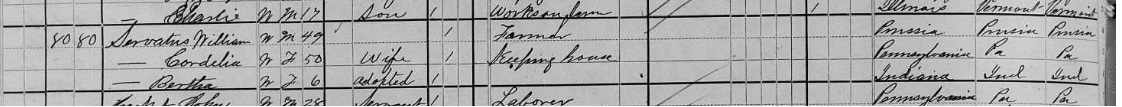 — Charlie W M 17 Son 1 Works on farm 1 Illinois Vermont Vermont
80 80 Servatus, William W M 49 1 Farmer Prussia Prusia Prusia
— Cordelia W F 50 Wife 1 Keeping house Pennsylvania Pa Pa
— Bertha W F 6 adopted 1 Indiana Ind Ind
John W M 28 Servant 1 Laborer Pennsylvania Pa Pa